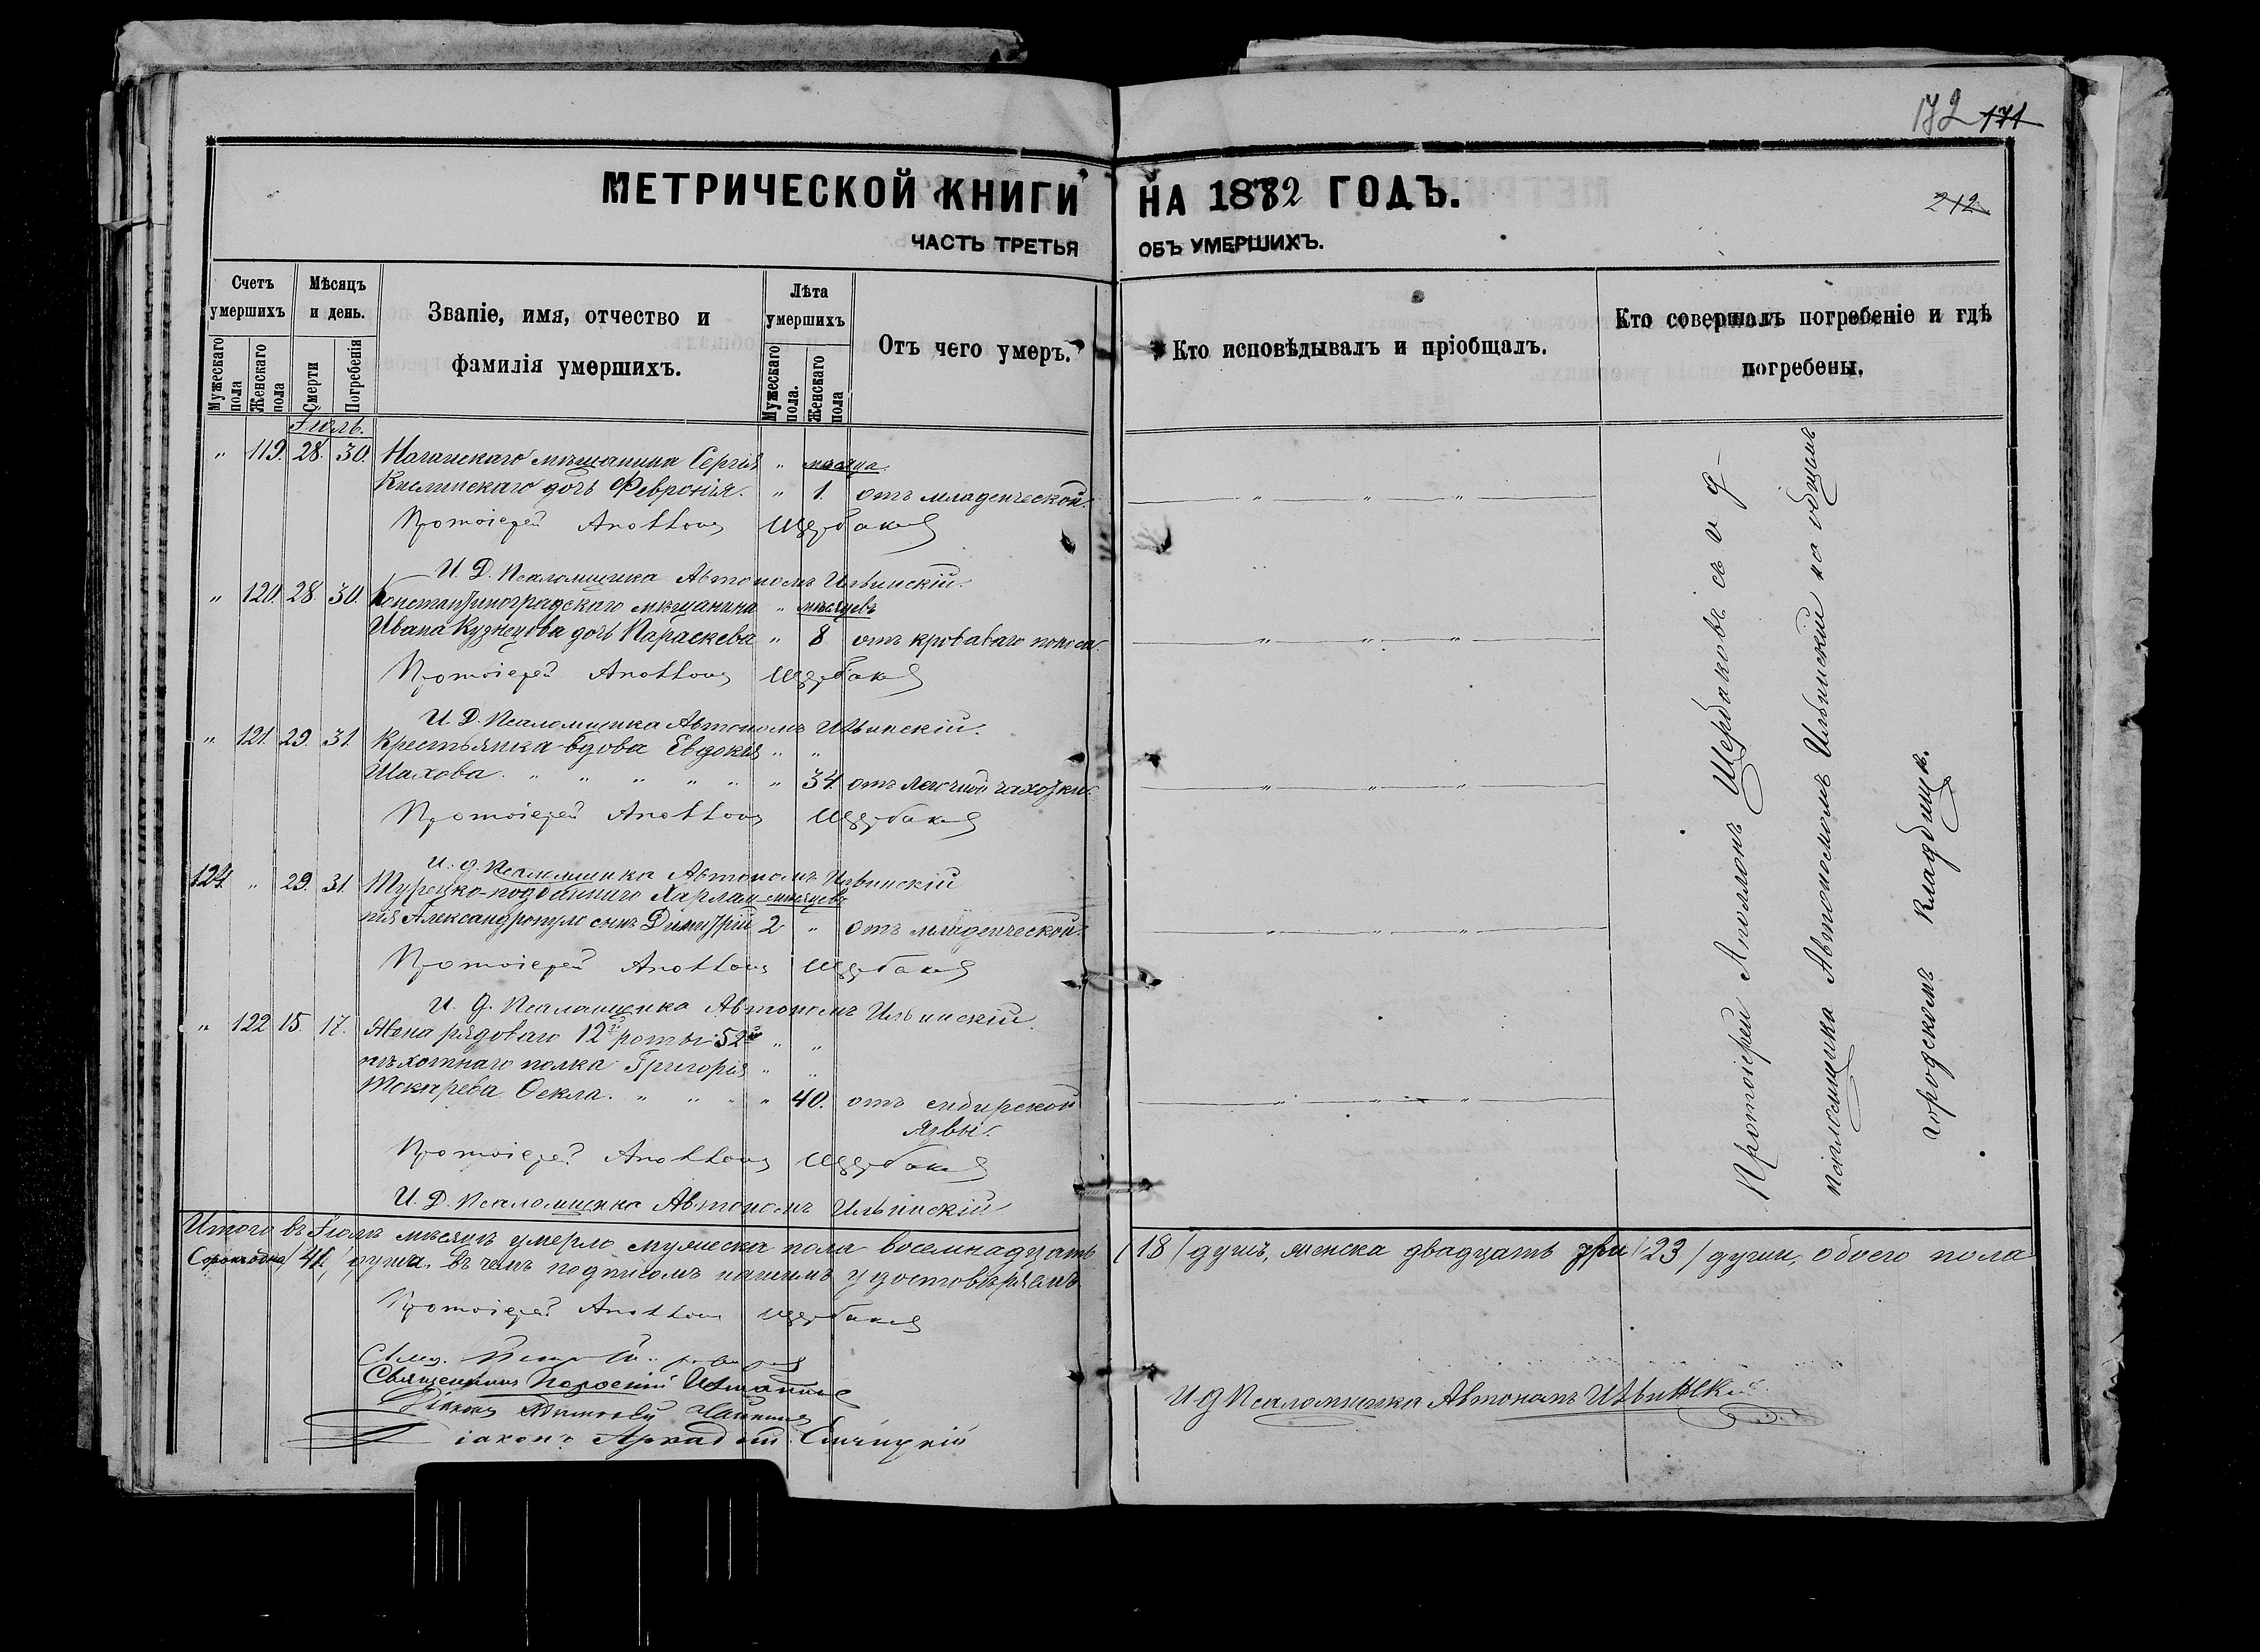 172 171
МЕТРИЧЕСКОЙ КНИГИ НА 1882 ГОДЪ.
212
ЧАСТЬ ТРЕТЬЯ ОБЪ УМЕРШИХЪ.
Счетъ умершихъ
Мужескаго пола
Женскаго пола
Мѣсяцъ и день.
Смерти
Погребенія
Званіе, имя, отчество и
фамилія умершихъ.
Лѣта умершихъ
Мужескаго пола.
Женскаго пола
Отъ чего умеръ.
Кто исповѣдывалъ и пріобщалъ.
Кто совершалъ погребеніе и гдѣ
погребены.
Іюль.
" 119. 28. 30. мѣщанина Сергія " мѣсяца
дочь Февронія. " 1. отъ младенческой.
Протоіерей Аполлонъ Щербаковъ
И. Д. Псаломщика Автономъ Ильинскій.
" 120. 28. 30. Константиноградскаго мѣщанина " мѣсяцевъ
Ивана Кузнецова дочь Параскева " 8 отъ кроваваго поноса.
Протоіерей Аполлонъ Щербаковъ
И. Д. Псаломщика Автономъ Ильинскій.
" 121. 29. 31. Крестьянка вдова Евдокія " "
Шахова. " " " " " " 34. отъ легочной чахотки.
Протоіерей Аполлонъ Щербаковъ
И. д. Псаломщика Автономъ Ильинскій
124. " 29. 31. Турецко-подданнаго Харлам- мѣсяцевъ
пія Александропуло сынъ Димитрій 2 " отъ младенческой.
Протоіерей Аполлонъ Щербаковъ
И. д. Псаломщика Автономъ Ильинскій.
" 122 15. 17. Жена рядоваго 12й роты 52го " "
пѣхотнаго полка Григорія " "
Токарева Ѳекла. " " " " 40. отъ сибирской
язвы.
Протоіерей Аполлонъ Щербаковъ
И. Д. Псаломщика Автономъ Ильинскій
Протоіерей Аполлонъ Щербаковъ съ и д
псаломщика Автономомъ Ильинскій на общемъ
городскомъ кладбищѣ.
Итого въ Іюлѣ мѣсяцѣ умерло мужеска пола восемнадцать /18/ душъ, женска двадцать три /23/ души, обоего пола
Сорокъ одна /41/ душа. Въ чемъ подписомъ нашимъ удостовѣряемъ.
Протоіерей Аполлонъ Щербаковъ
Священникъ
Діаконъ
Діаконъ Аркадій
И д Псаломщика Автономъ Ильинскій